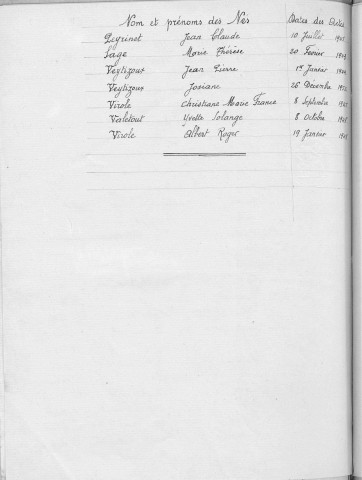 Nom et prénoms des Nés Dates des Actes
Peyrinet Jean Claude 10 Juillet
Sage Marie Thérèse 20 Février
Veytizoux Jean Pierre 1er Janvier
Veytizoux Josiane 26 Décembre
Virole Christiane Marie France 8 Septembre
Valetout Yvette Solange 8 Octobre
Virole Albert Roger 19 Janvier